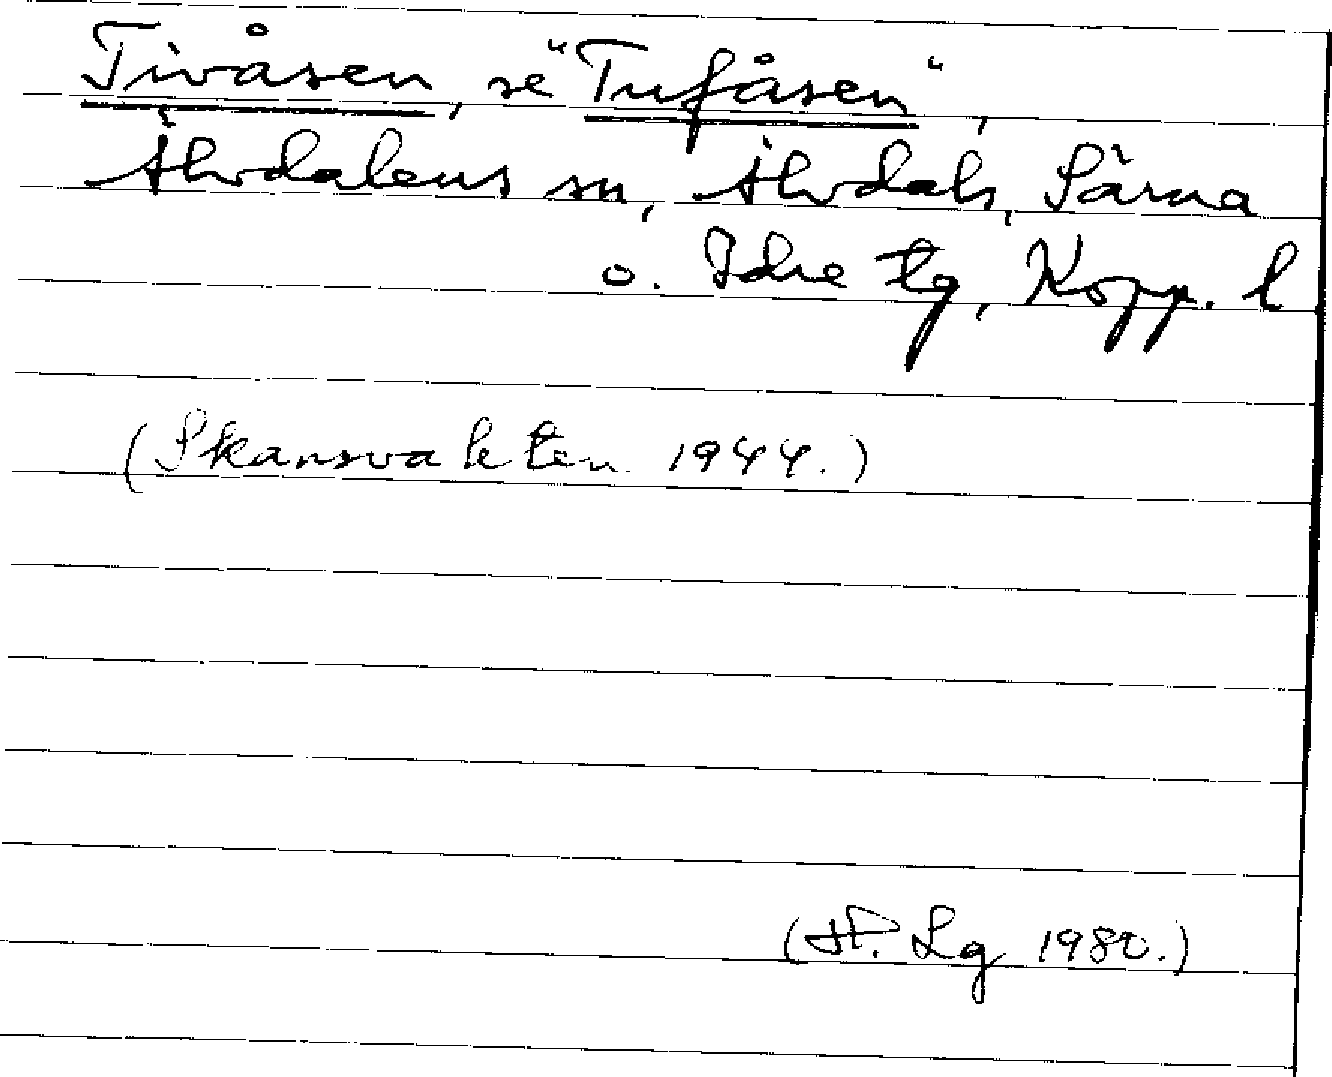 Tivåsen, se "Tufåsen",
Älvdalens sn, Älvdals, Särna
o. Idre tg, Kopp. l
(Skansvakten 1944.)
(H. Lg 1980.)